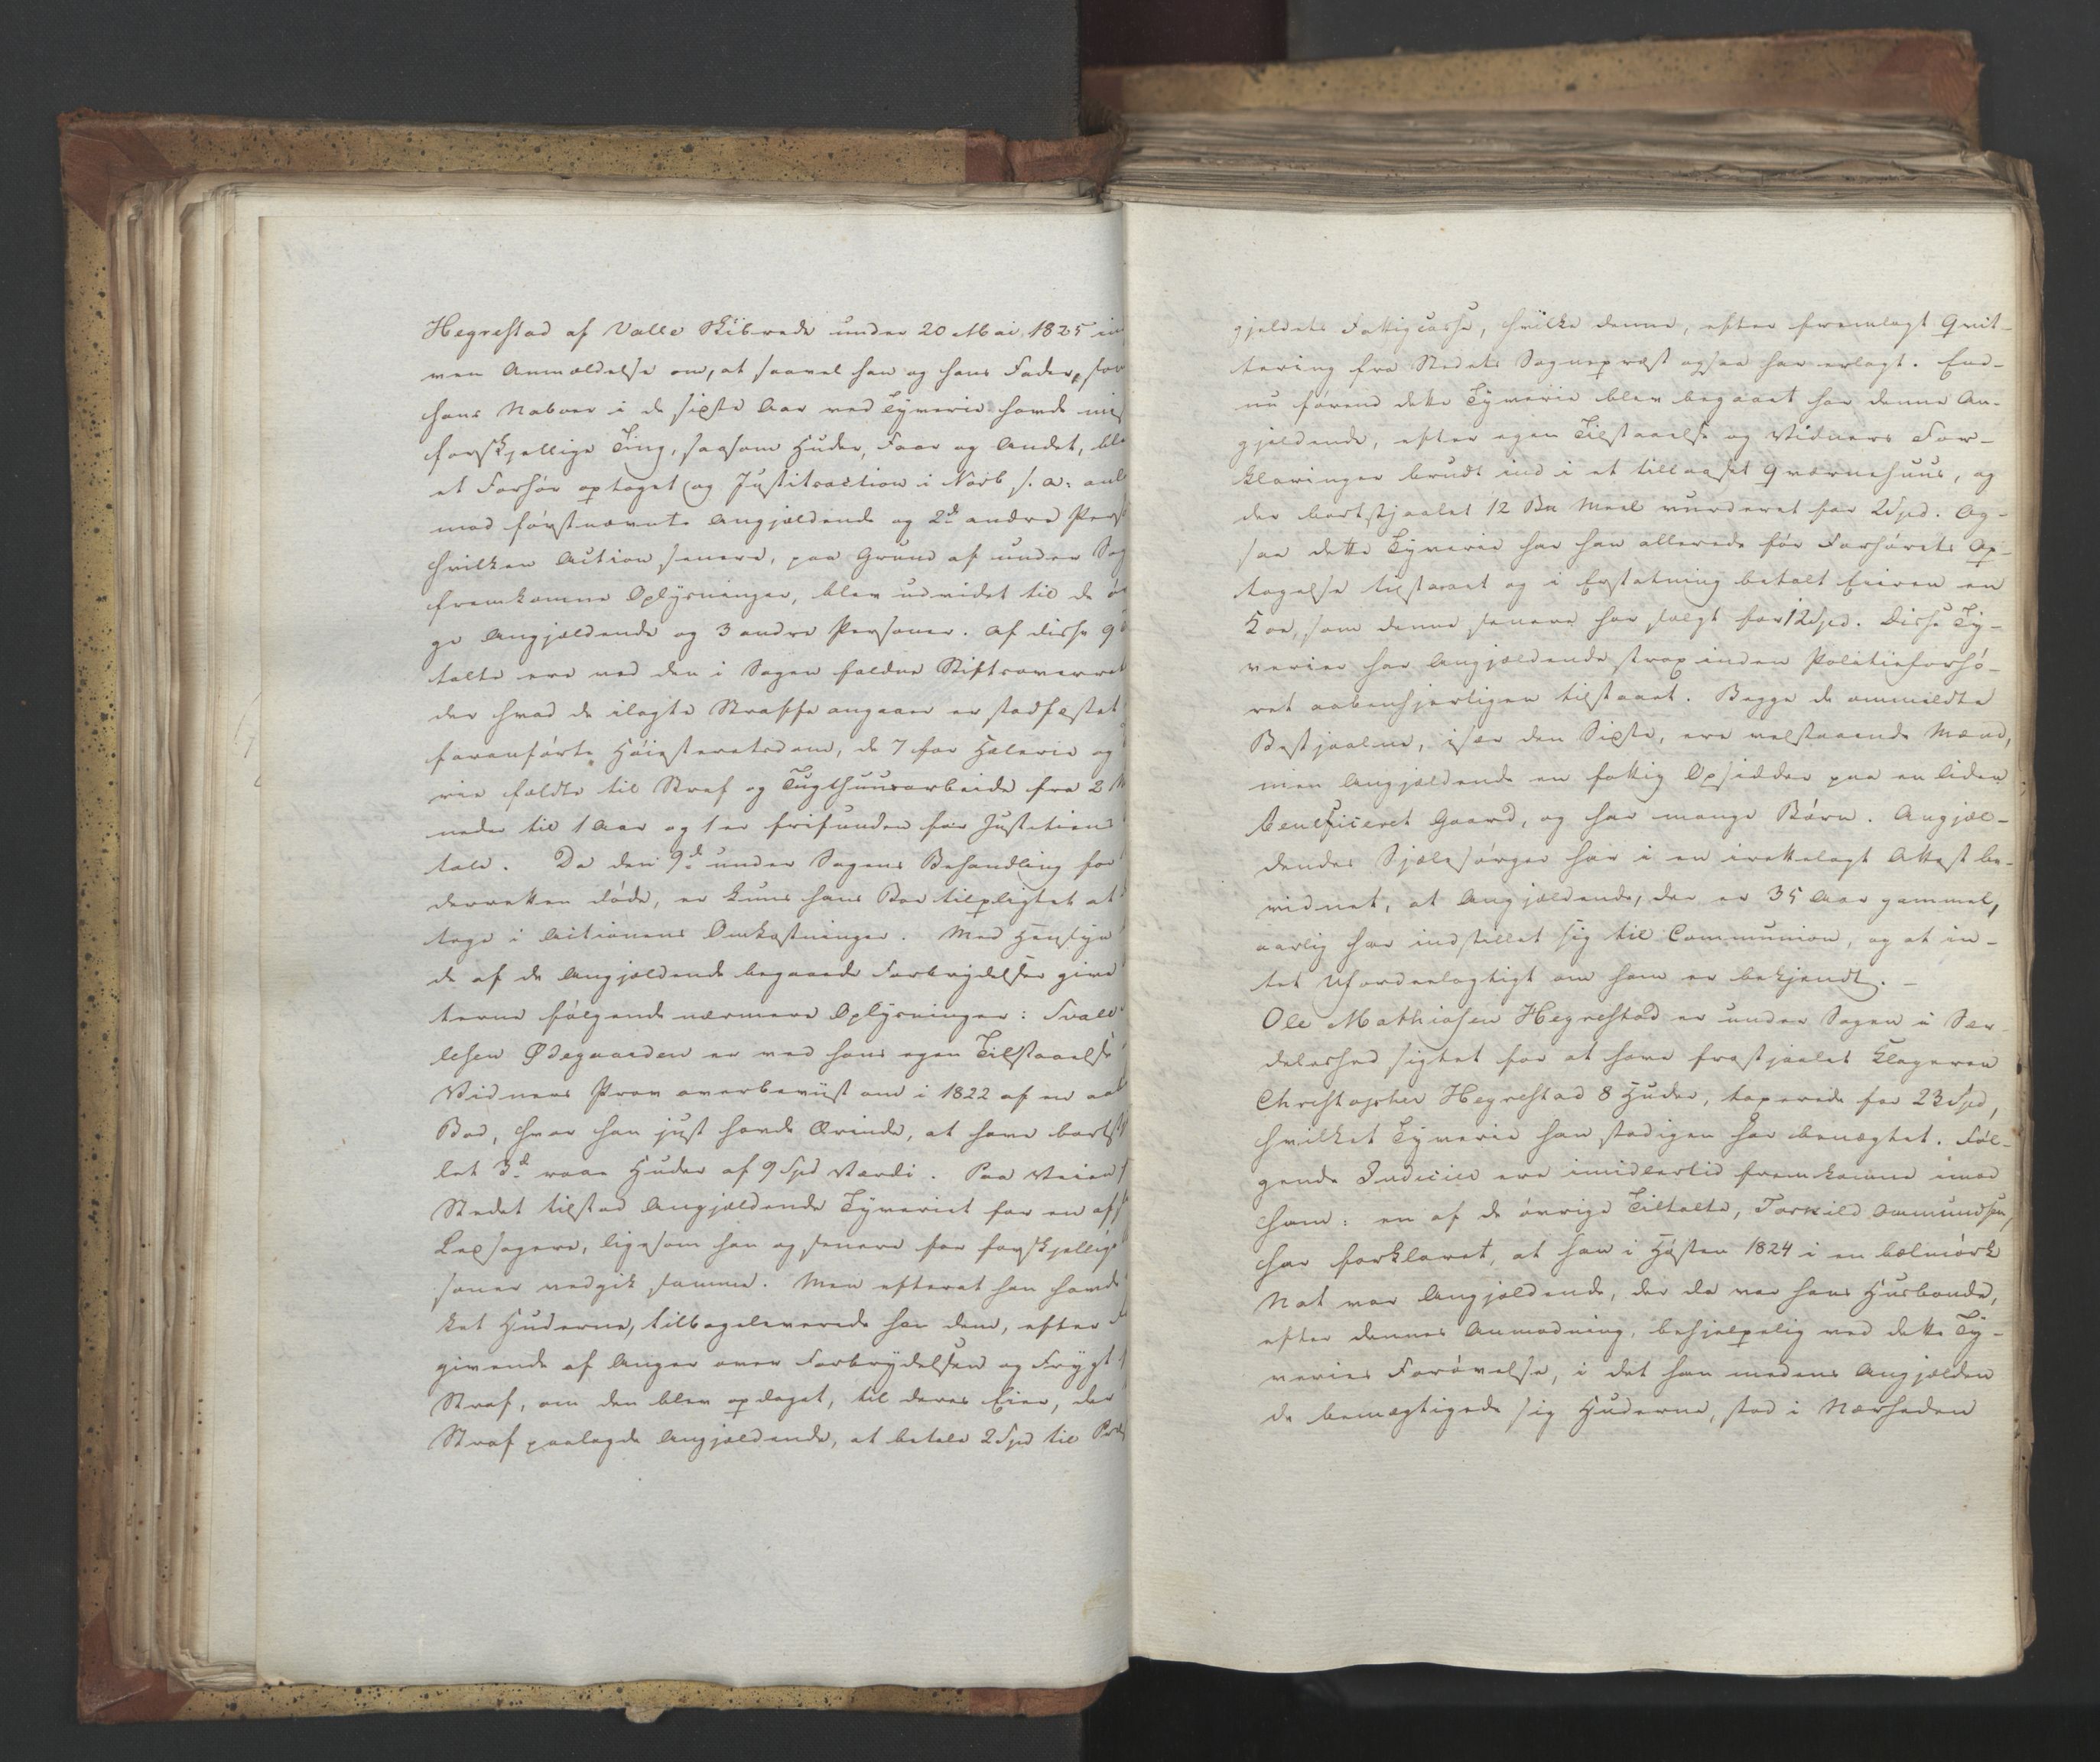 Hegrestad af Valle Skibrede under 20 Mai 1825 in
ven Anmældelse om, at saavel han og hans Fader, som
hans Naboer i de sidste Aar ved Tyverie havde mis
forskjellige Ting, saasom Huder, Faar og Andet, ble
et Forhør optaget og Justitsaction i Novb s. a. anl
mod førstnævnte Angjældende og 2de andre Pers
hvilken Action senere, paa Grund af under Sag
fremkomne Oplysninger, blev udvidet til de ø
ge Angjældende og 3 andre Personer. Af disse 9
talte ere ved den i Sagen faldne Stiftsoverret
der hvad de ilagte Straffe angaaer er stadfæstet
foranførte Høiesteretsdom, de 7 for Hælerie og
rie fældte til Straf og Tugthuusarbeide fra 2 M
neder til 1 Aar og 1 er frifunden for Justitiens
tale. Da den 9de under Sagens Behandling for
derretten døde, er kuns hans Boe tilpligtet at
tage i Actionens Omkostninger. Med Hensyn
de af de Angjældende begaaede Forbrydelser give
terne følgende nærmere Oplysninger: Tvale
lesen Ødegaarden er ved hans egen Tilstaaelse
Vidners Prov overbeviist om i 1822 af en aab
Bod, hvor han just havde Ærinde, at have bortst
let 3de raae Huder af 9 Spd Værdi. Paa Veien f
Stedet tilstod Angjældende Tyveriet for en af
Ledsagere, ligesom han og senere for forskjellige
soner vedgik samme. Men efterat han havde
ket Huderne, tilbageleverede han dem, efter
givende af Anger over Forbrydelsen og Frygt
Straf, om den blev opdaget, til deres Eier, der
Straf paalagde Angjældende, at betale 2 Spd til Præs
gjeldets Fattigcasse, hvilke denne, efter fremlagt Qvit-
tering fra Stedets Sognepræst ogsaa har erlagt. End-
nu førend dette Tyverie blev begaaet har denne An-
gjeldende, efter egen Tilstaaelse og Vidners For-
klaringer brudt ind i et tillaaset Qværnehuus, og
der bortstjaalet 12 Bn Meel vurderet for 2 Spd. Og-
saa dette Tyverie har han allerede før Forhørets Op-
tagelse tilstaaet og i Erstatning betalt Eieren en
Koe, som denne senere har solgt for 12 Spd. Disse Ty-
verier har Angjældende strax inden Politieforhø-
ret aabenhjertigen tilstaaet. Begge de ommeldte
Bestjaalne, især den Sidste, ere velstaaende Mænd,
men Angjældende en fattig Opsidder paa en liden
beneficeret Gaard, og har mange Børn. Angjæl-
dendes Sjælesørger har i en irettelagt Attest be-
vidnet, at Angjældende, der er 35 Aar gammel,
aarlig har indstillet sig til Communion, og at in-
tet Ufordeelagtigt om ham er bekjendt. -
Ole Mathiasen Hegrestad er under Sagen i Sær-
deleshed sigtet for at have frastjaalet Klageren
Christopher Hegrestad 8 Huder, taxerede for 23 Spd,
hvilket Tyverie han stadigen har benægtet. Føl-
gende Indicier ere imidlertid fremkomne imod
ham: en af de øvrige Tiltalte, Torkild Aamundsen,
har forklaret, at han i Høsten 1824 i en bælmørk
Nat var Angjældende, der da var hans Husbonde,
efter dennes Anmodning, behjelpelig ved dette Ty-
veries Forøvelse, i det han medens Angjælden
de bemægtigede sig Huderne, stod i Nærheden